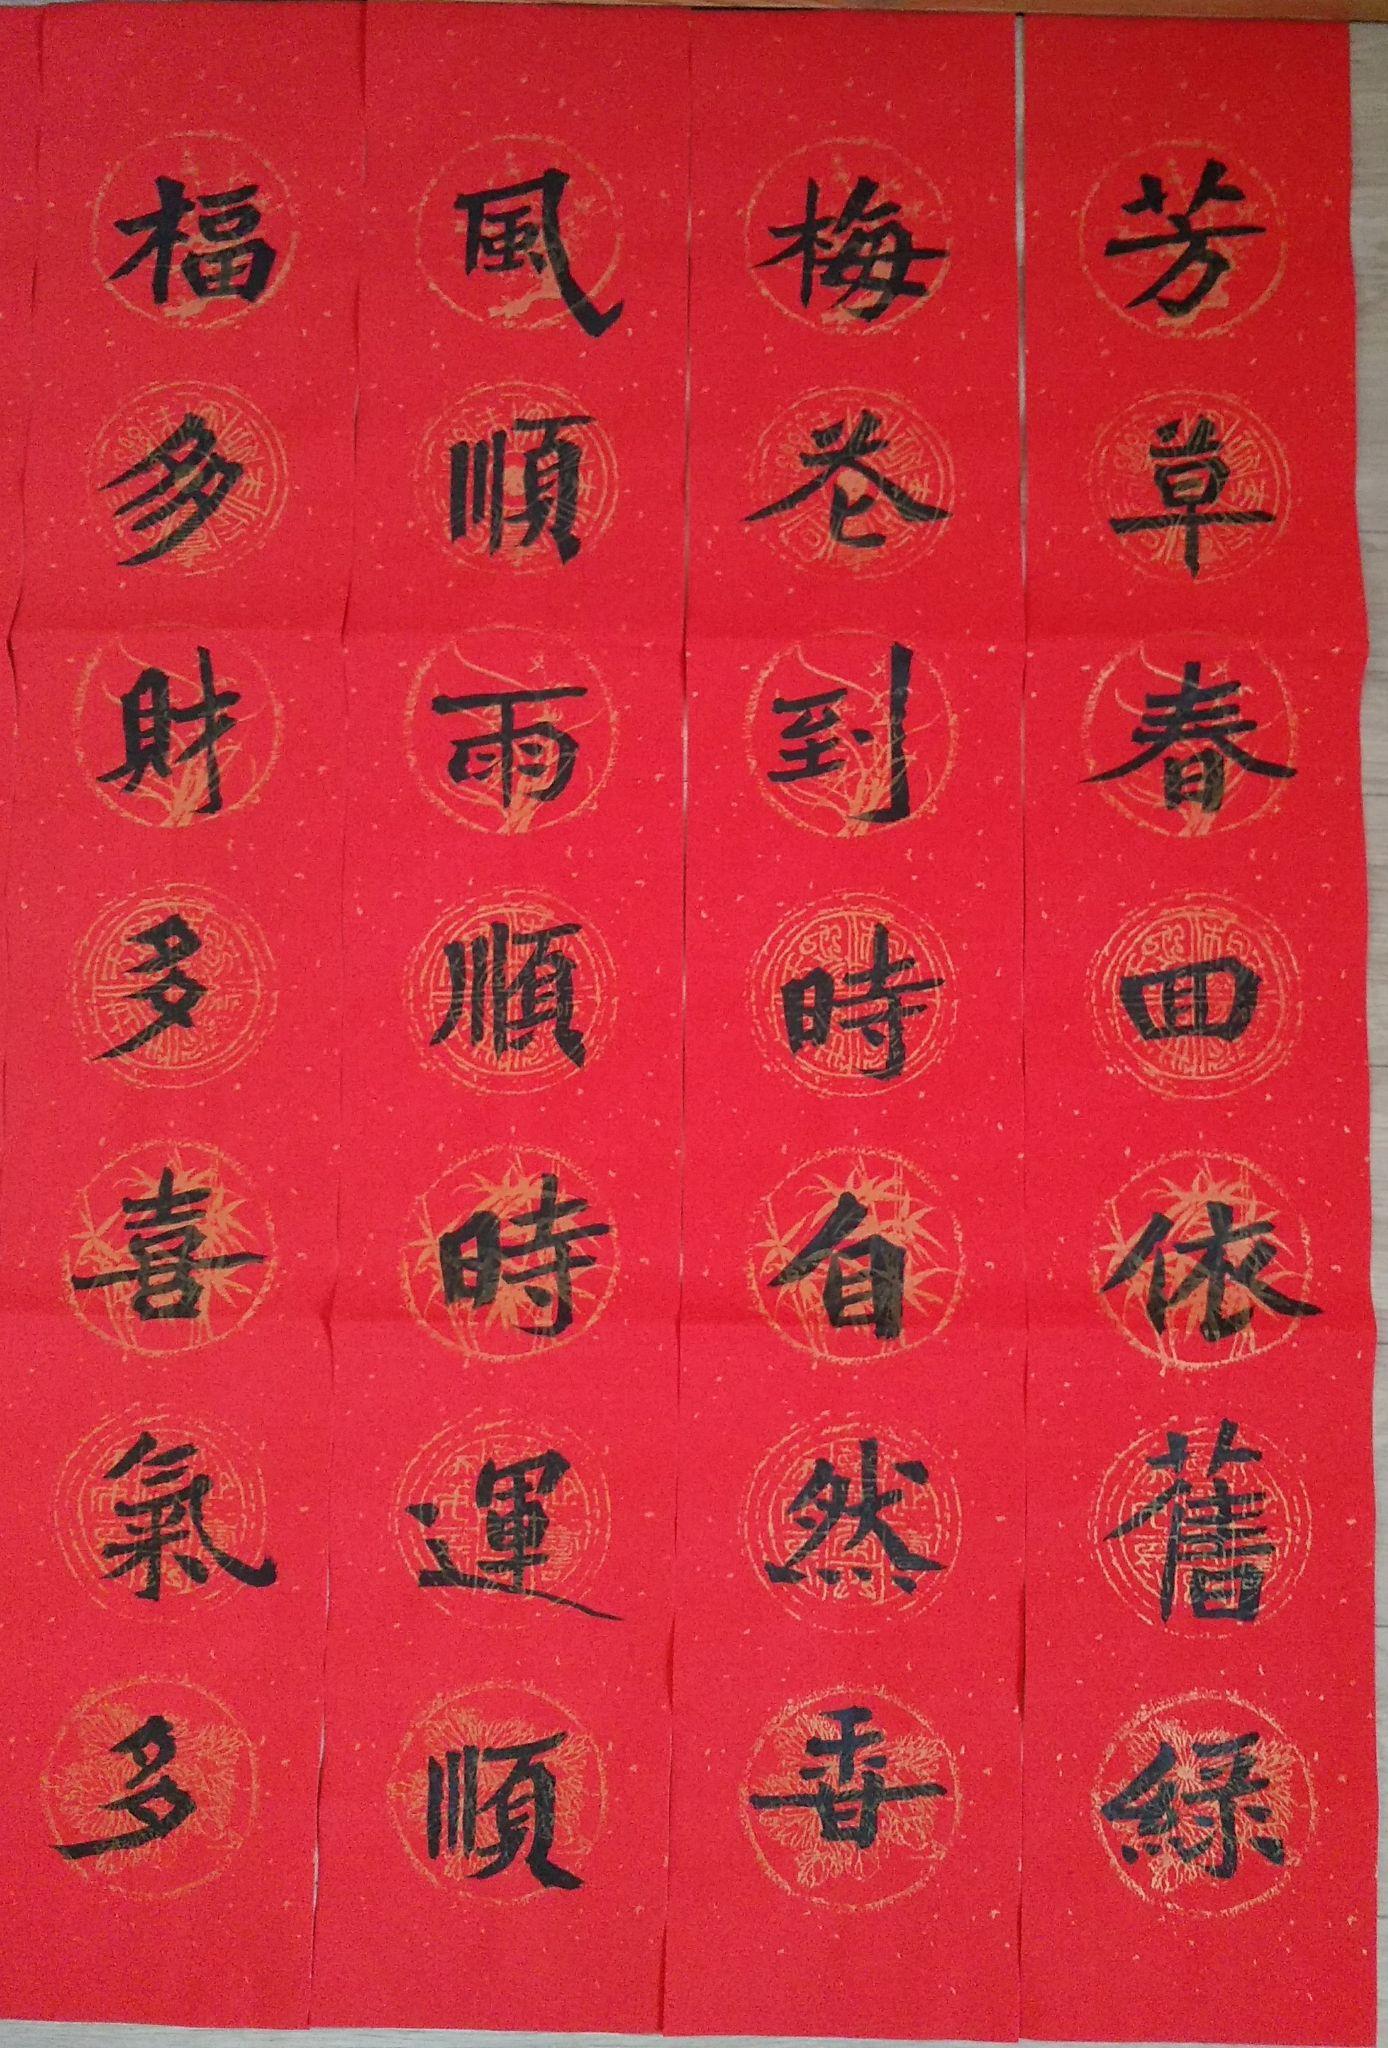 芳草春回依舊綠
梅花到時自然香
風順雨順時運順
福多財多喜氣多